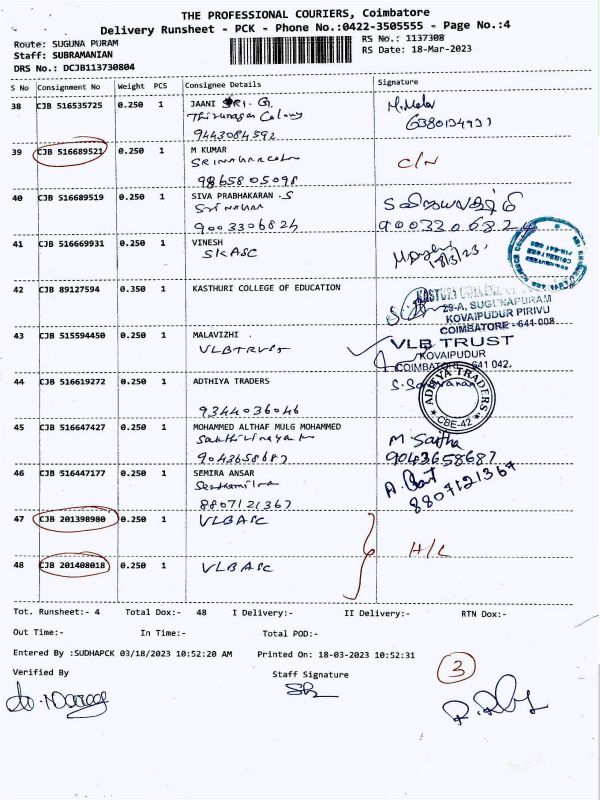 THE PROFESSIONAL COURIERS, Coimbatore
Delivery Runsheet - PCK - Phone No.:0422-3505555 - Page No.:4
Route: SUGUNA PURAM
RS No.: 1137308
Staff: SUBRAMANIAN
RS Date: 18-Mar-2023
DRS No.: DCJB113730804
S No Consignment No Weight PCS Consignee Details Signature
38 CJB 516535725 0.250 1 JAANI SRI. G.
Thirunagar Colony
9443084592
6380134937
39 CJB 516689521 0.250 1 M KUMAR
C/N
9865805098
40 CJB 516689519 0.250 1 SIVA PRABHAKARAN .S
Srinagar
9003306824
9003306824
41 CJB 516669931 0.250 1 VINESH
SKASC
18/3/23.
42 CJB 89127594 0.350 1 KASTHURI COLLEGE OF EDUCATION
KASTURI COLLEGE OF
29-A, SUGUNAPURAM
KOVAIPUDUR PIRIVU
COIMBATORE - 641 008.
43 CJB 515594450 0.250 1 MALAVIZHI
VLB TRUST
VLB TRUST
KOVAIPUDUR
COIMBATORE - 641 042.
44 CJB 516619272 0.250 1 ADTHIYA TRADERS
9344036046
S. Saravanan
ADHIYA TRADERS
CBE-42
45 CJB 516647427 0.250 1 MOHAMMED ALTHAF MULG MOHAMMED
Sakthivinayak
9043658687
M. Saitha
9043658687
46 CJB 516447177 0.250 1 SEMIRA ANSAR
8807121367
8807121367
47 CJB 201398980 0.250 1 VLBASC
H/L
48 CJB 201408018 0.250 1 VLBASC
Tot. Runsheet:- 4 Total Dox:- 48 I Delivery:- II Delivery:- RTN Dox:-
Out Time:- In Time:- Total POD:-
Entered By :SUDHAPCK 03/18/2023 10:52:20 AM Printed On: 18-03-2023 10:52:31
Verified By Staff Signature
3